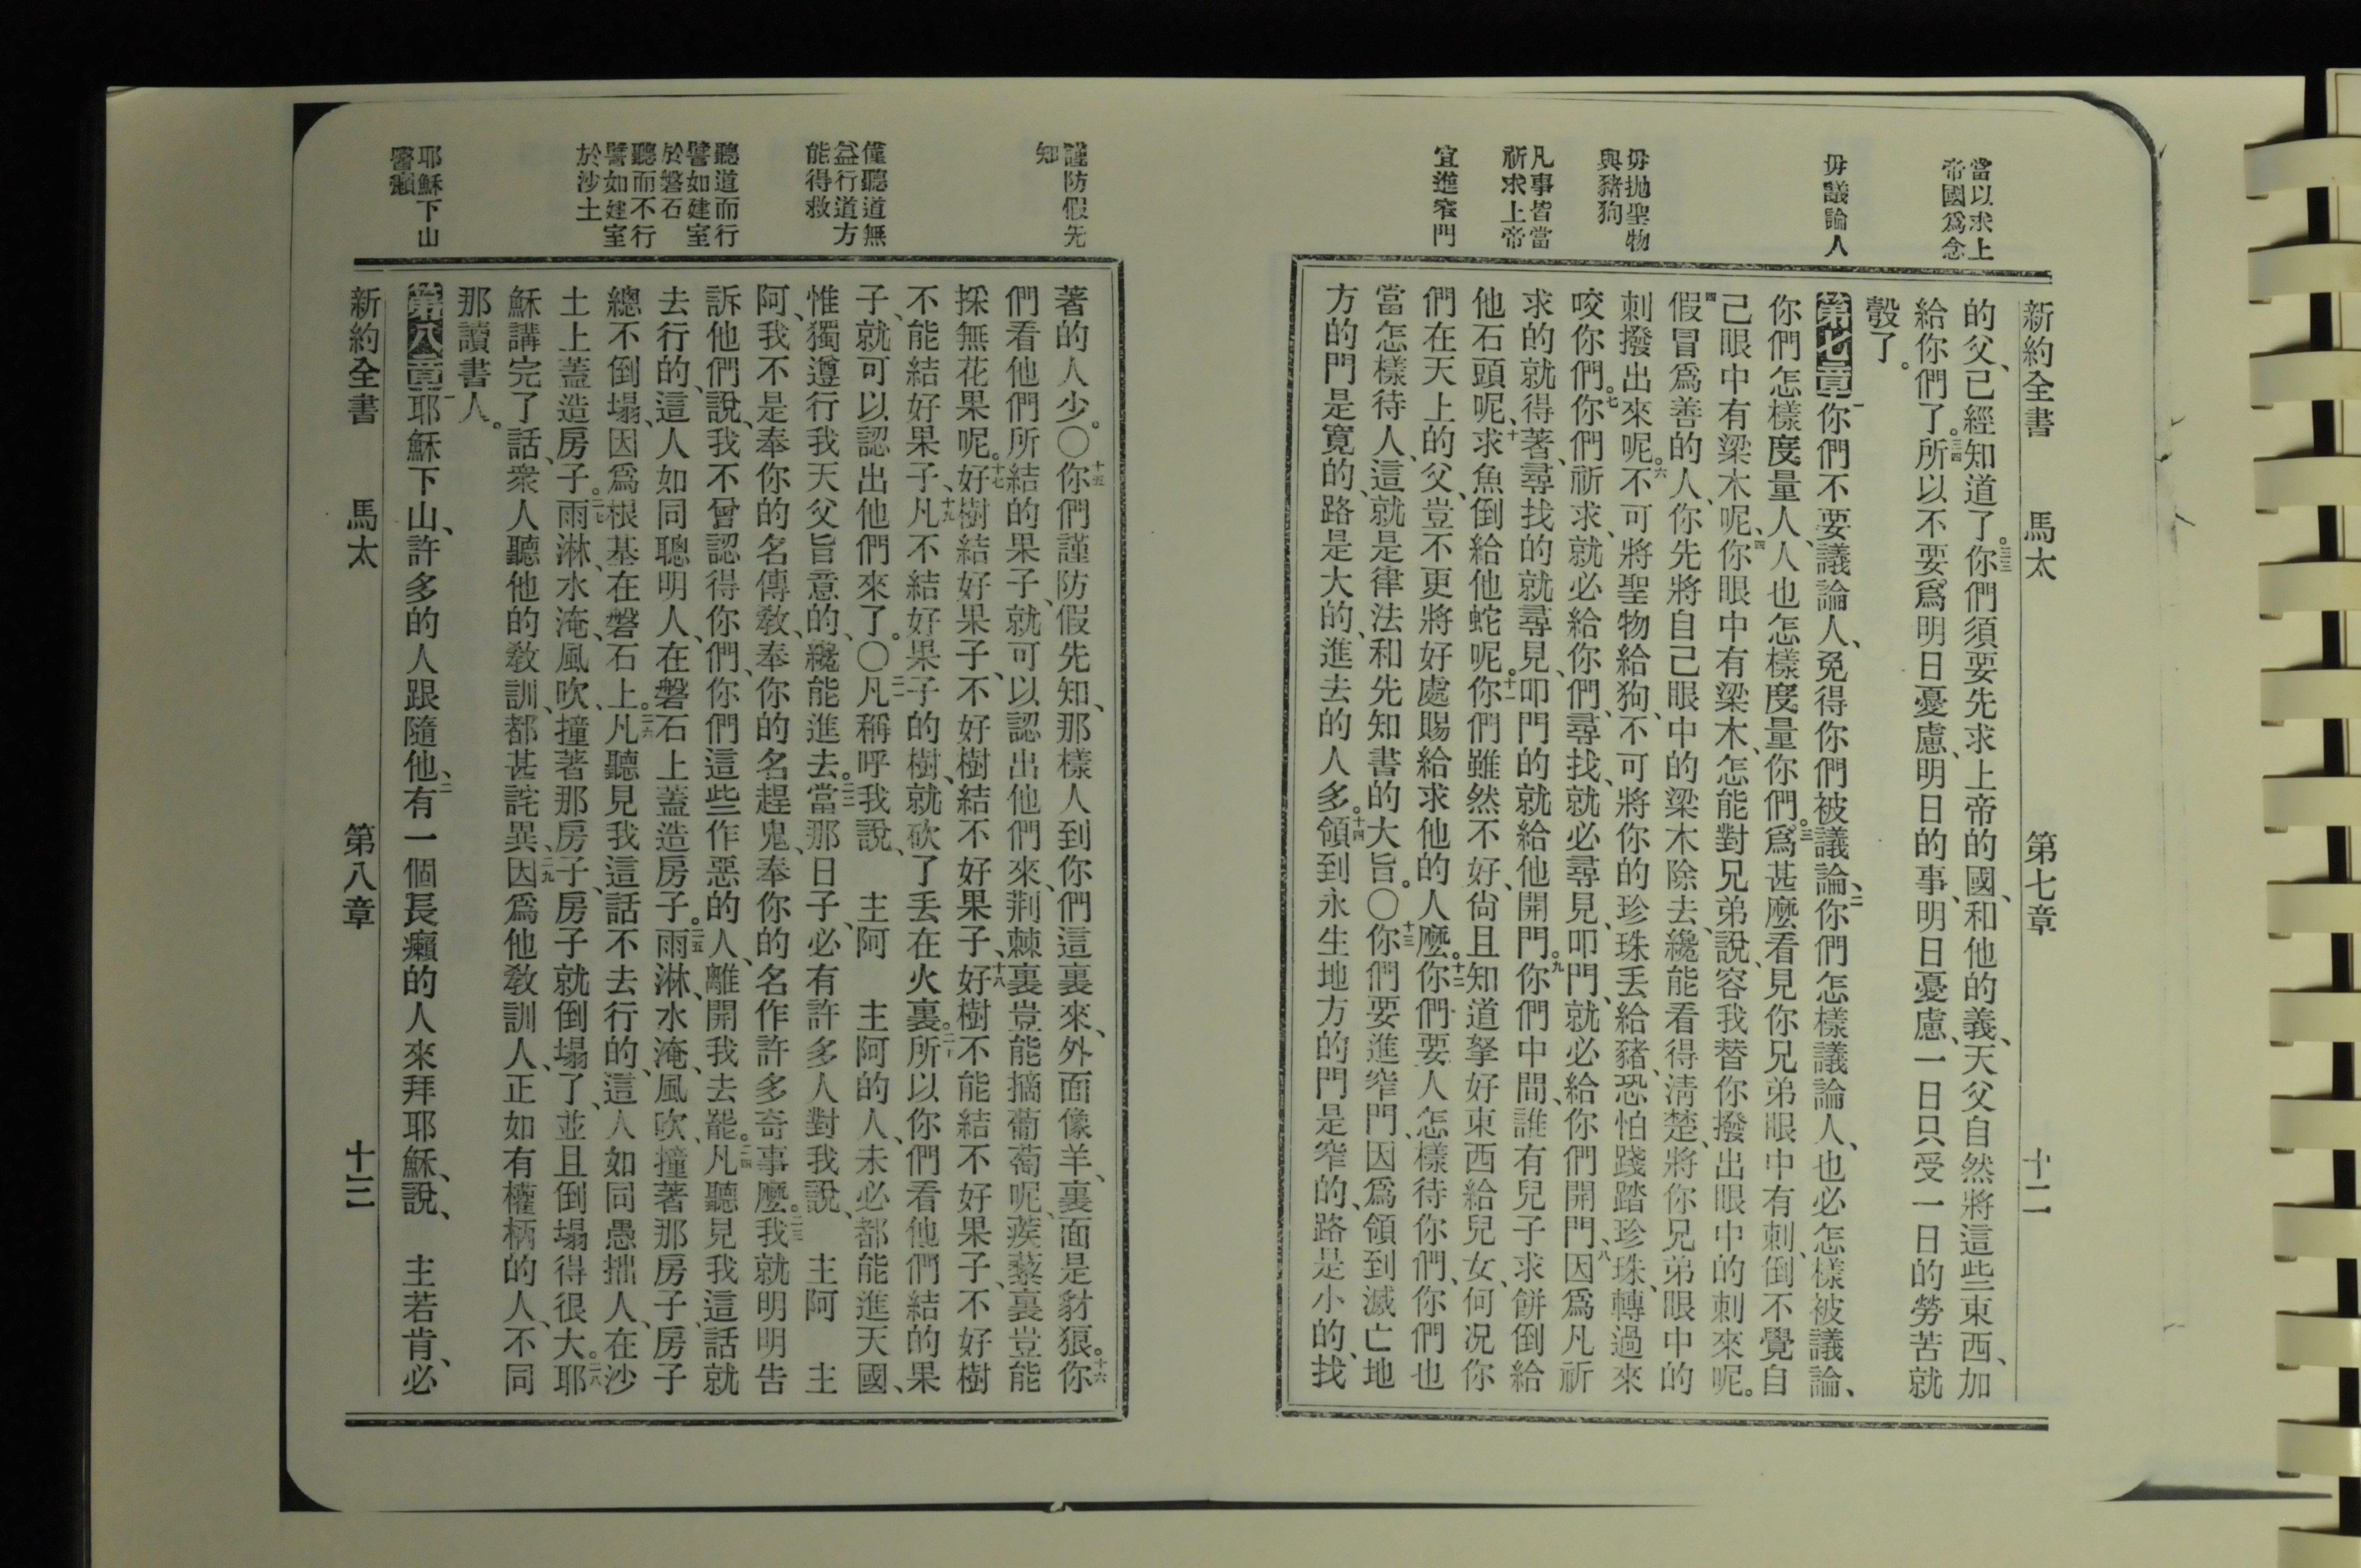 當以求上
帝國爲念
毋議論人
毋拋聖物
與豬狗
凡事皆當
祈求上帝
宜進窄門
新約全書 馬太 第七章 十二
的父、已經知道了。三三你們須要先求上帝的國、和他的義、天父自然將這些東西、加
給你們了。三四所以不要爲明日憂慮、明日的事、明日憂慮、一日只受一日的勞苦就
彀了。
第七章一你們不要議論人、免得你們被議論、二你們怎樣議論人、也必怎樣被議論、
你們怎樣度量人、人也怎樣度量你們。三爲甚麼看見你兄弟眼中有刺、倒不覺自
己眼中有梁木呢、四你眼中有梁木、怎能對兄弟說、容我替你撥出眼中的刺來呢。
四假冒爲善的人、你先將自己眼中的梁木除去、纔能看得淸楚、將你兄弟眼中的
刺撥出來呢。六不可將聖物給狗、不可將你的珍珠丟給豬、恐怕踐踏珍珠、轉過來
咬你們。七你們祈求、就必給你們、尋找、就必尋見、叩門、就必給你們開門、八因爲凡祈
求的就得著、尋找的就尋見、叩門的就給他開門。九你們中間、誰有兒子求餅倒給
他石頭呢、十求魚倒給他蛇呢。十一你們雖然不好、尙且知道拏好東西給兒女、何況你
們在天上的父、豈不更將好處賜給求他的人麼。十二你們要人怎樣待你們、你們也
當怎樣待人、這就是律法和先知書的大旨。〇十三你們要進窄門、因爲領到滅亡地
方的門是寬的、路是大的、進去的人多。十四領到永生地方的門是窄的、路是小的、找
謹防假先
知
僅聽道無
益行道方
能得救
聽道而行
譬如建室
於磐石
聽而不行
譬如建室
於沙土
耶穌下山
醫癩
著的人少。〇十五你們謹防假先知、那樣人到你們這裏來、外面像羊、裏面是豺狼。十六你
們看他們所結的果子、就可以認出他們來、荆棘裏豈能摘葡萄呢、蒺藜裏豈能
採無花果呢。十七好樹結好果子、不好樹結不好果子、十八好樹不能結不好果子、不好樹
不能結好果子、十九凡不結好果子的樹、就砍了丟在火裏。二十所以你們看他們結的果
子、就可以認出他們來了。〇二一凡稱呼我說、主阿 主阿的人、未必都能進天國、
惟獨遵行我天父旨意的、纔能進去。二二當那日子、必有許多人對我說、主阿 主
阿、我不是奉你的名傳敎、奉你的名趕鬼、奉你的名作許多奇事麼。二三我就明明告
訴他們說、我不曾認得你們、你們這些作惡的人、離開我去罷。二四凡聽見我這話就
去行的、這人如同聰明人、在磐石上蓋造房子。二五雨淋、水淹、風吹、撞著那房子、房子
總不倒塌、因爲根基在磐石上。二六凡聽見我這話不去行的、這人如同愚拙人、在沙
土上蓋造房子。二七雨淋、水淹、風吹、撞著那房子、房子就倒塌了、並且倒塌得很大。二八耶
穌講完了話、衆人聽他的敎訓、都甚詫異、二九因爲他敎訓人、正如有權柄的人、不同
那讀書人。
第八章一耶穌下山、許多的人跟隨他、二有一個長癩的人來拜耶穌、說、主若肯、必
新約全書 馬太 第八章 十三